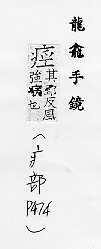 龍龕手鏡
痙其郢反風
強病也
(疒部
P474)